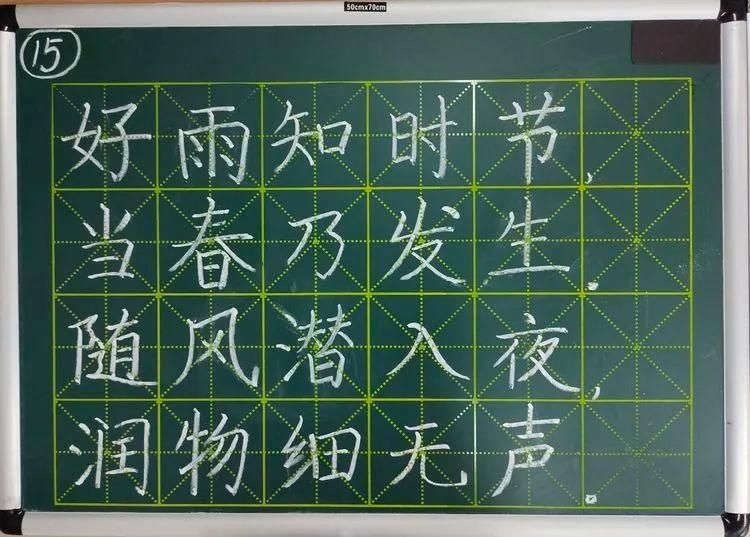 50cmx70cm
15
好雨知时节,
当春乃发生。
随风潜入夜,
润物细无声。